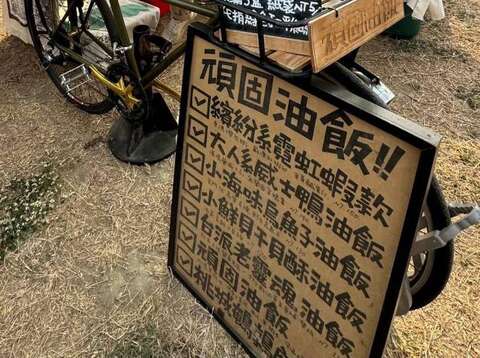 紙袋NT5
頑固油飯
頑固油飯!!
繽紛系霓虹蝦款
大人系威士鴨油飯
小海味烏魚子油飯
小鮮貝干貝酥油飯
台派老靈魂油飯
頑固油飯
桃城鶴鶉